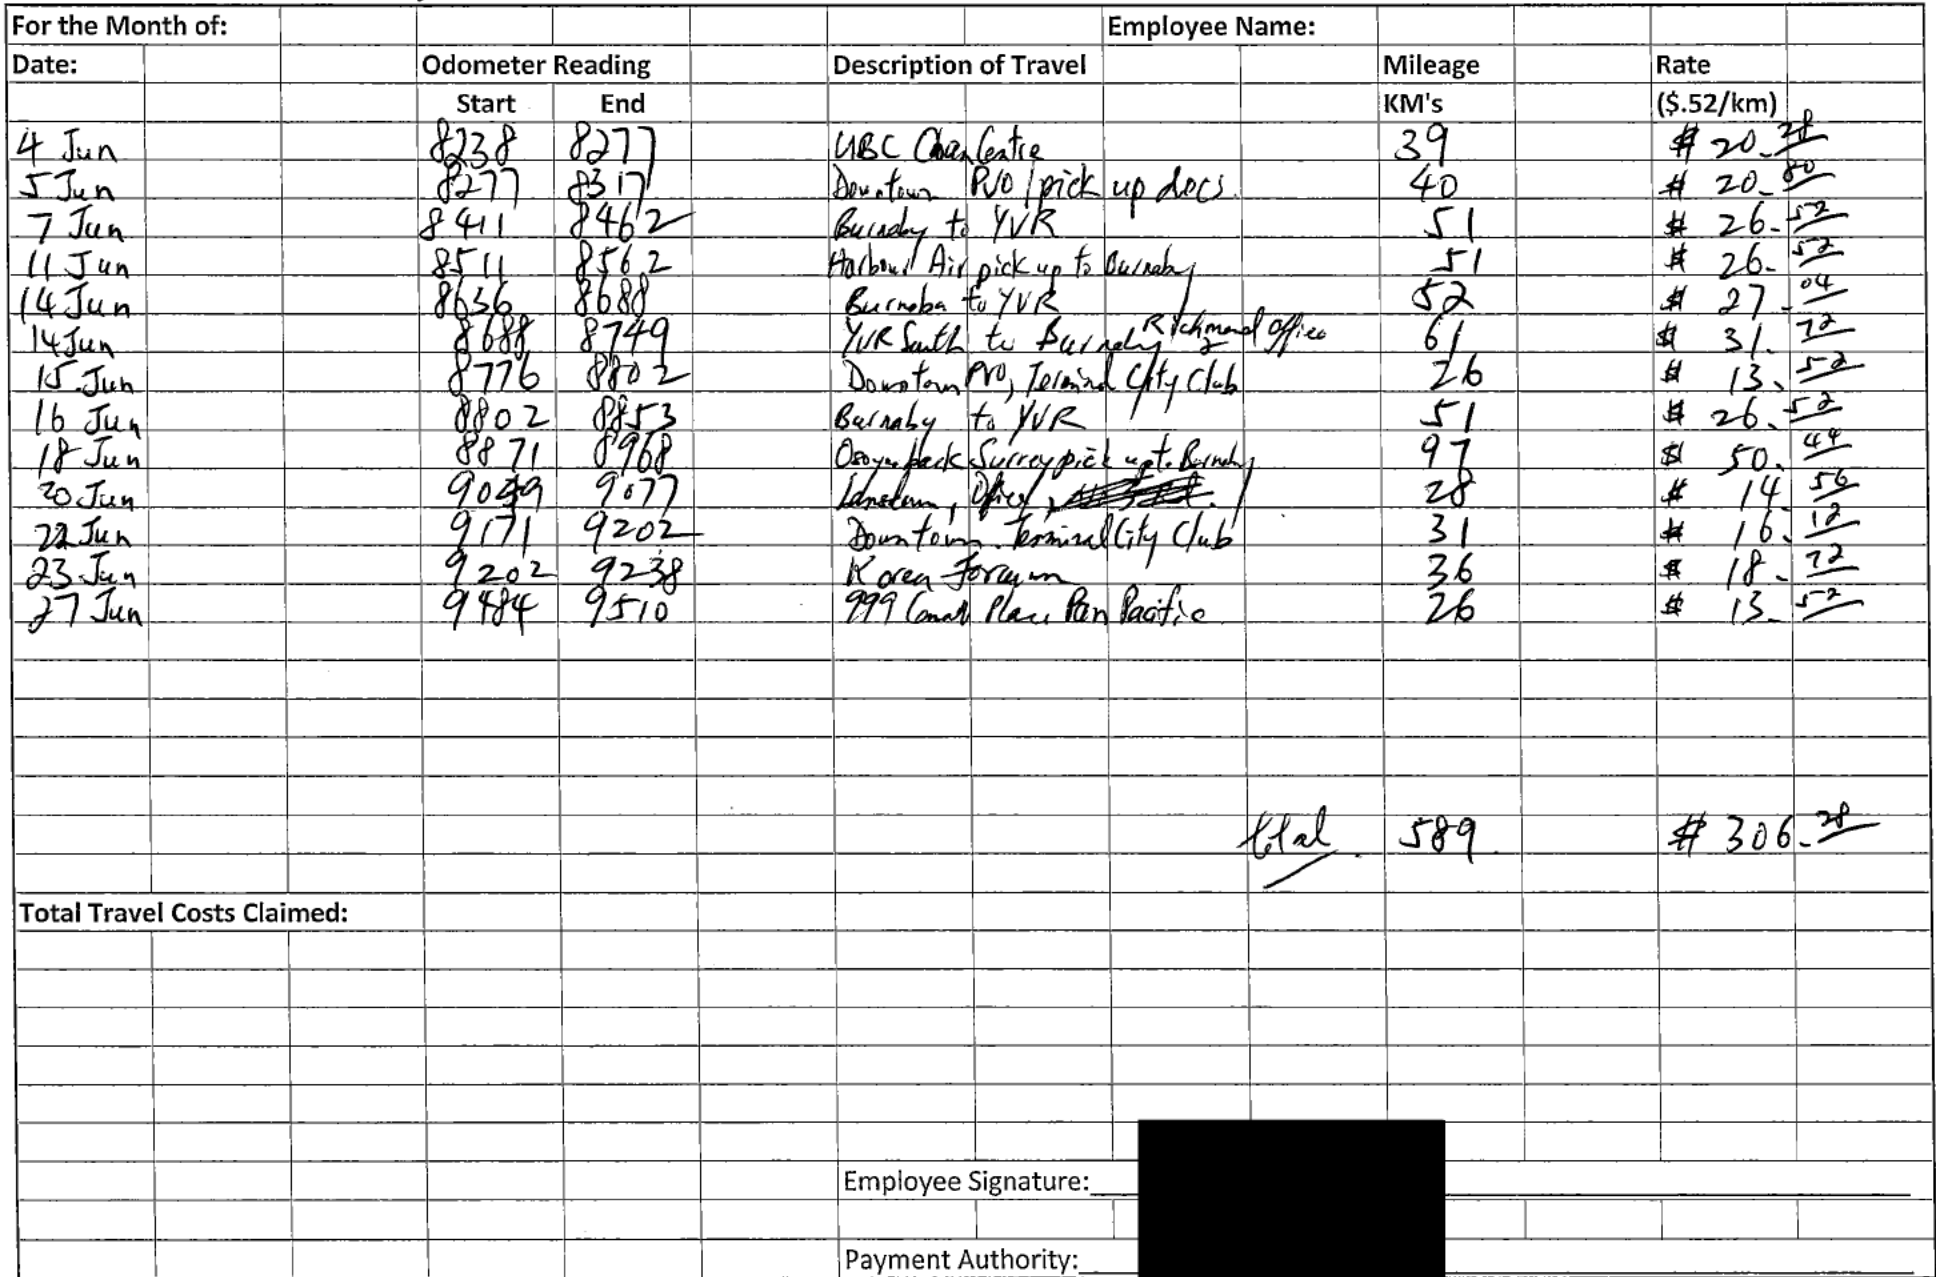 For the Month of: Employee Name:
Date: Odometer Reading Description of Travel Mileage Rate
Start End KM's ($.52/km)
4 Jun 8238 8277 UBC Chan Centre 39 $ 20.28
5 Jun 8277 8317 Downtown PVO / pick up docs 40 $ 20.80
7 Jun 8411 8462 Burnaby to YVR 51 $ 26.52
11 Jun 8511 8562 Harbour Air pick up to Burnaby 51 $ 26.52
14 Jun 8636 8688 Burnaba to YVR 52 $ 27.04
14 Jun 8688 8749 YVR South to Burnaby Richmond Office 61 $ 31.72
15 Jun 8776 8802 Downtown PVO, Terminal City Club 26 $ 13.52
16 Jun 8802 8853 Burnaby to YVR 51 $ 26.52
18 Jun 8871 8968 back Surrey pick up to Burnaby 97 $ 50.44
20 Jun 9049 9077 Office, 28 $ 14.56
22 Jun 9171 9202 Downtown Terminal City Club 31 $ 16.12
23 Jun 9202 9238 Korea 36 $ 18.72
27 Jun 9484 9510 999 Place Pan Pacific 26 $ 13.52
total 589 $ 306.28
Total Travel Costs Claimed:
Employee Signature:
Payment Authority: